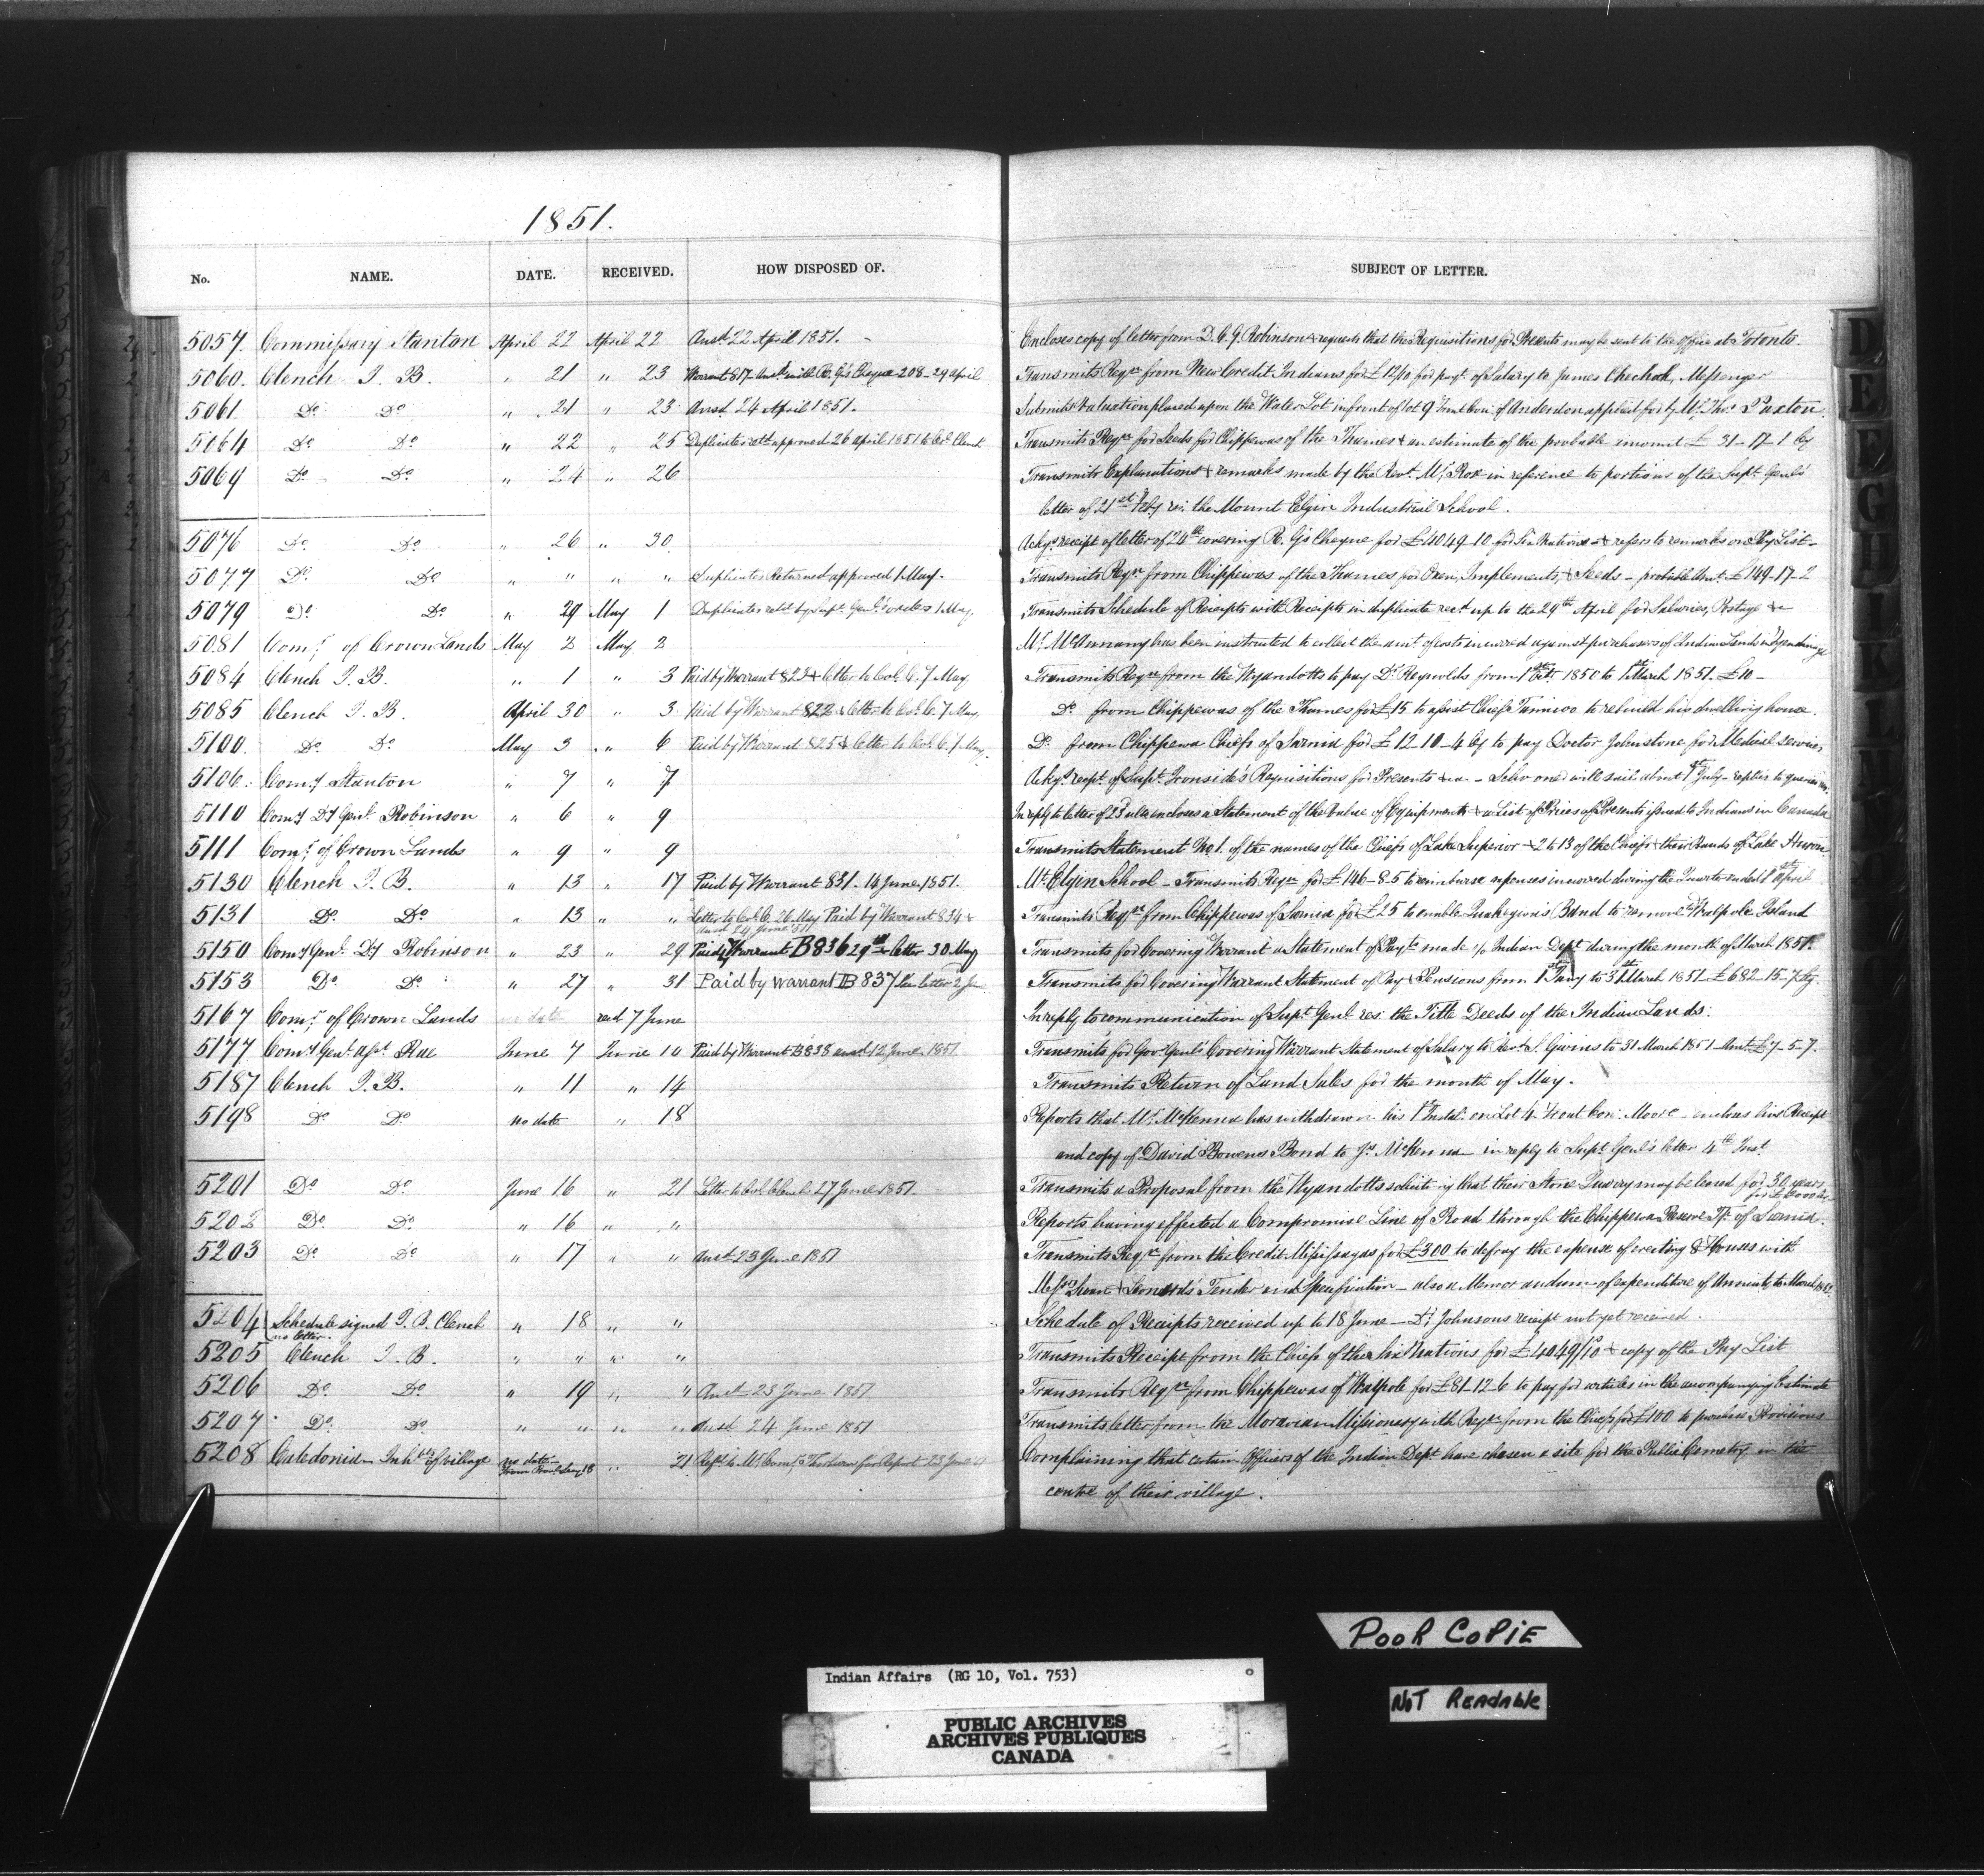 1851.
No. NAME. DATE. RECEIVED. HOW DISPOSED OF. SUBJECT OF LETTER.
5057. Commissary Stanton April 22 April 22 Ansd 22 April 1851. Encloses copy of letter from D. C. G. Robinson & requests that the Requisitions for Presents may be sent to the Office at Toronto.
5060. Clench J. B. " 21 " 23 Warrant 817 Ansd with R. G's Cheque 208 - 24 April Transmits Reqn from New Credit Indians for £12/10 for payt of Salary to James Chechok, Messenger
5061 Do Do " 21 " 23 Ansd 24 April 1851. Submits Valuation placed upon the Water Lot in front of lot 9 front Con: of Anderdon applied for by Mr Thos Paxton.
5064 Do Do " 22 " 25 Duplicates retd approved 26 april 1851 to Col. Clench Transmits Reqn for Seeds for Chippewas of the Thames & an estimate of the probable amount £ 31-17-1 Cy
5069 Do Do " 24 " 26 Transmits Explanations & remarks made by the Revt Mr Rose in reference to portions of the Supt Genl's
letter of 21st Feby re: the Mount Elgin Industrial School.
5076 Do Do " 26 " 30 Ackgs receipt of letter of 24th covering R. G's Cheque for £4049-10 for Six Nations & refers to remarks on Pay List -
5077 Do Do " " " " Duplicates Returned approved 1 May. Transmits Reqn from Chippewas of the Thames for Oxen, Implements, & Seeds - probable Amt £149-17-2
5079 Do Do " 29 May 1 Duplicates retd by Supt Genl's order 1 May Transmits Schedule of Receipts with Receipts in duplicate recd up to the 29th April for Salaries, Postage &c
5081 Comr of Crown Lands May 2 May 2 Mr McAnnany has been instructed to collect the amt of costs incurred against purchasers of Indian Lands in
5084 Clench J. B. " 1 " 3 Paid by Warrant 823 & letter to Col. C. 7 May Transmits Reqn from the Wyandotts to pay Dr Reynolds from 1st 1850 to 1st March 1851. £10 -
5085 Clench J. B. April 30 " 3 Paid by Warrant 822 & letter to Col. C. 7 May Do from Chippewas of the Thames for £15 to assist Chief to rebuild his dwelling house.
5100. Do Do May 3 " 6 Paid by Warrant 825 & letter to Col C. 7 May Do from Chippewa Chiefs of Sarnia for £12-10-4 Cy to pay Doctor Johnstone for Medical services
5106. Comy Stanton " 7 " 7 Ackgs recpt of Supt Ironside's Requisitions for Presents &ca - Schooner will sail about 1st July - replies to queries
5110 Comy Dy Genl Robinson " 6 " 9 In reply to letter of 23d ulto encloses a Statement of the value of Equipments & a List of Prices of Presents issued to Indians in Canada
5111 Comr of Crown Lands " 9 " 9 Transmits Statement No 1. of the names of the Chiefs of Lake Superior & 2 to 13 of the Chiefs & their Bands of Lake Huron.
5130 Clench J. B. " 13 " 17 Paid by Warrant 831 - 14 June 1851. Mt Elgin School - Transmits Reqn for £146-8-5 to reimburse expenses incurred during the Quarter ended 1st April
5131 Do Do " 13 " " Letter to Col. C. 26 May Paid by Warrant 834 & Transmits Reqn from Chippewas of Sarnia for £25 to enable Band to remove to Walpole Island
ansd 24 June
5150 Comy Genl Dy Robinson " 23 " 29 Paid by Warrant B836 29th letter 30 May Transmits for Covering Warrant a Statement of Payts made Indian Dept during the month of March 1851.
5153 Do Do " 27 " 31 Paid by warrant B 837 letter 2 June Transmits for Covering Warrant Statement of Pay & Pensions from 1st Jany to 31st March 1851 - £682-15-7
5167 Comr of Crown Lands no date recd 7 June In reply to communication of Supt Genl res: the Title Deeds of the Indian Lands.
5177 Comy Genl Asst Rae June 7 June 10 Paid by Warrant B838 ansd 12 June 1851 Transmits for Gov: Genl's Covering Warrant Statement of Salary to Revd S. Givins to 31 March 1851 Amt £7-5-7.
5187 Clench J. B. " 11 " 14 Transmits Return of Land Sales for the month of May.
5198 Do Do no date " 18 Reports that Mr McKenna has withdrawn his 1st Instal: on Lot 4 Front Con: Moore - encloses his Receipt
and copy of David Bowens Bond to Js McKenna in reply to Supt Genl's letter 4th Inst
5201 Do Do June 16 " 21 Letter to Col. Clench 27 June 1851. Transmits a Proposal from the Wyandotts soliciting that their Stone Quarry may be leased for 30 years
5202 Do Do " 16 " " Reports having effected a Compromise Line of Road through the Chippewa Reserve Tp of Sarnia.
5203 Do Do " 17 " " ansd 23 June 1851 Transmits Reqn from the Credit Missisagas for £300 to defray the expense of erecting 8 Houses with
Messrs & Leonards' Tender and Specification - also a Memorandum of expenditure of Annuity to March
5204 Schedule signed J. B. Clench " 18 " " Schedule of Receipts received up to 18 June - Dr Johnsons receipt not yet received.
no letter.
5205 Clench J. B. " " " " Transmits Receipt from the Chiefs of the Six Nations for £4049/10 & copy of the Pay List
5206 Do Do " 19 " " Ansd 23 June 1851 Transmits Reqn from Chippewas of Walpole for £81-12-6 to pay for articles in the accompanying Estimate
5207 Do Do " " " " ansd 24 June 1851 Transmits letter from the Moravian Missionary with Reqn from the Chiefs for £100 to purchase Provisions
5208 Caledonia Inhbts of village no date 21 Refd to Mr Comr Thorburn for Report 23 June Complaining that certain Officers of the Indian Dept have chosen a site for the Public Cemetry in the
centre of their village.
D
E
F
G
H
I
K
L
POOR COPIE
NOT READABLE
Indian Affairs (RG 10, Vol. 753)
PUBLIC ARCHIVES
ARCHIVES PUBLIQUES
CANADA